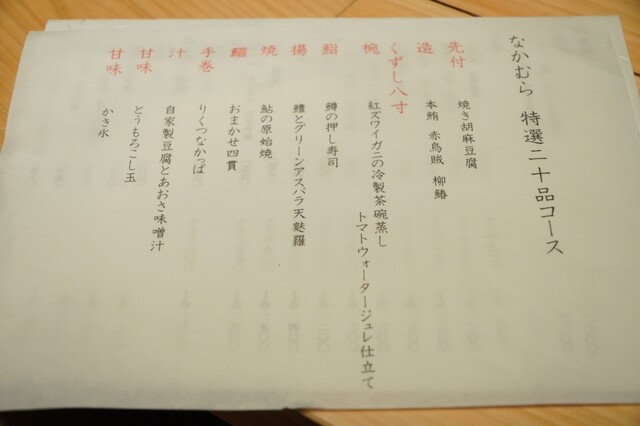 なかむら 特選二十品コース
先付 焼き胡麻豆腐
造 本鮪 赤烏賊 柳鰆
くずし八寸
椀 紅ズワイガニの冷製茶碗蒸し
トマトウォータージュレ仕立て
鮨 鱒の押し寿司
揚 鱧とグリーンアスパラ天麩羅
焼 鮎の原始焼
おまかせ四貫
手巻 りくつなかっぱ
汁 自家製豆腐とあおさ味噌汁
甘味 とうもろこし玉
甘味 かき氷